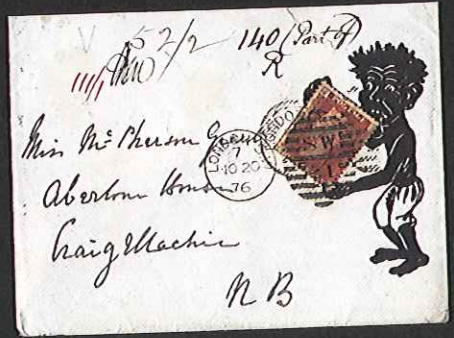 52/2 140 (Part of)
R
111/1
LONDON
7
10 20
76
LONDON
SW
1
Miss McPherson Grant
Aberlour House
Craigellachie
NB